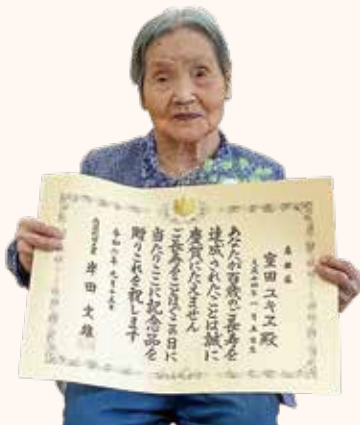 室田ユキヱ殿
あなたが百歳のご長寿を
達成されたことは誠に
慶賀にたえません
ご長寿をことほぐこの日に
当たりここに記念品を
贈りこれを祝します
令和六年九月十五日
内閣総理大臣 岸田文雄